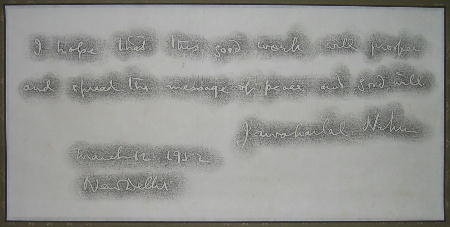 I hope that this good work will prosper
and spread the message of peace and good will
Jawaharlal Nehru
March 12, 1952
New Delhi